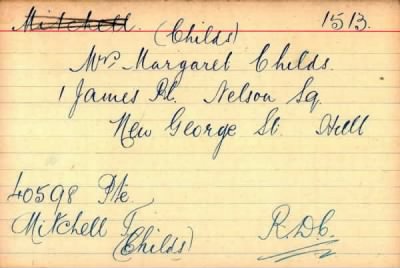 Mitchell (Childs) 1513.
Mrs Margaret Childs.
1 James Pl. Nelson Sq.
New George St. Hull
40598 Pte
Mitchell T.
(Childs) R.D.C.